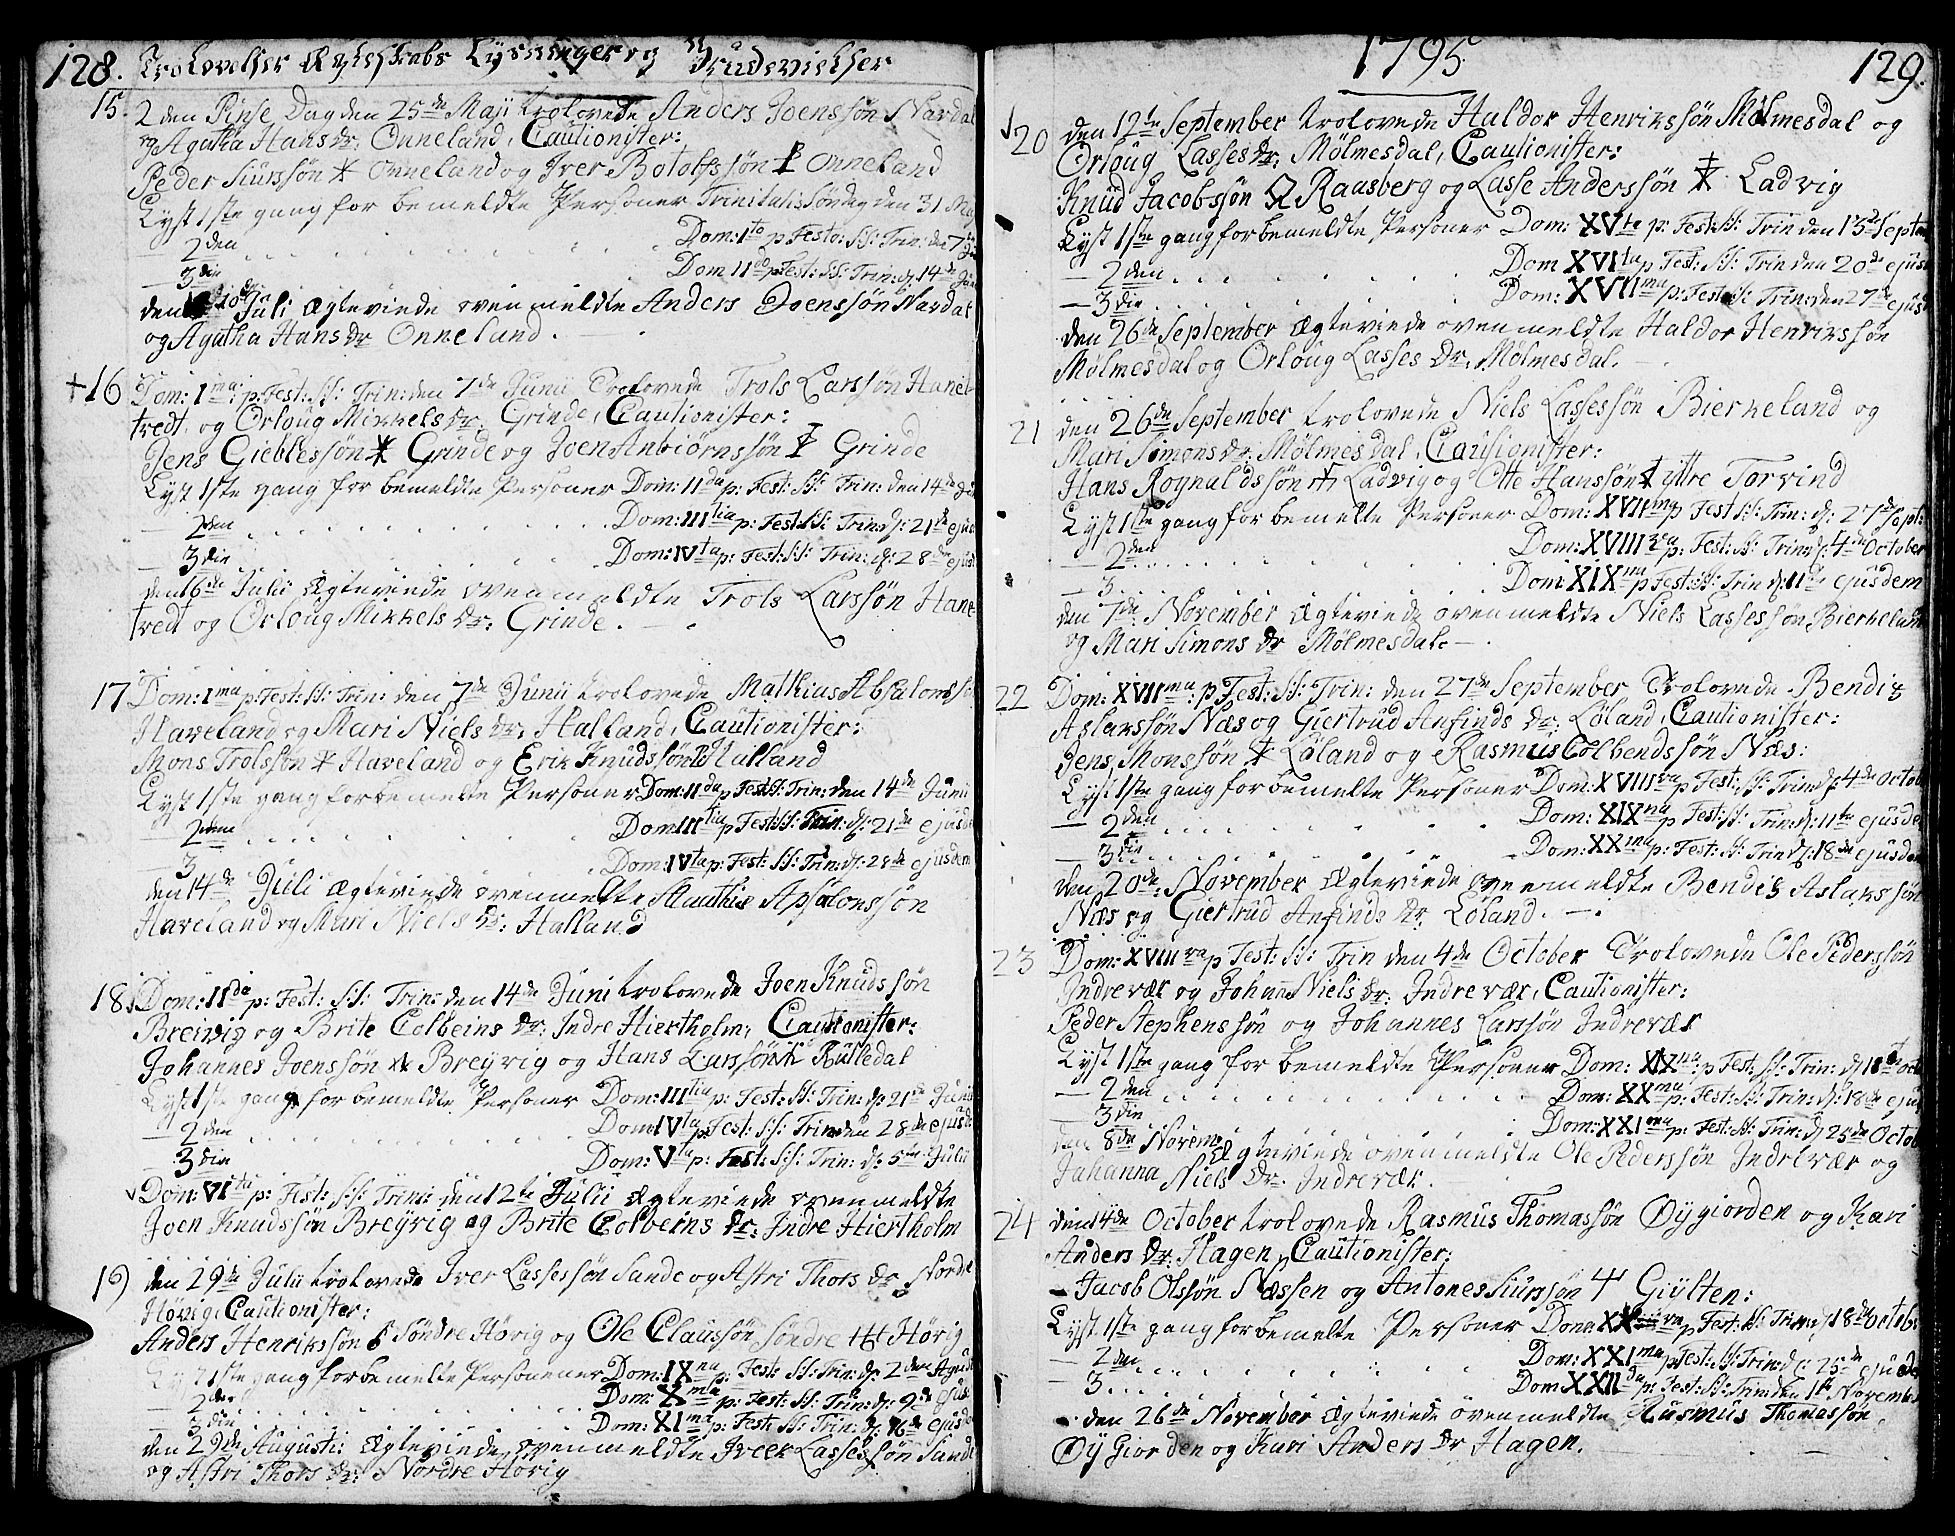 128. Trolovelser Ægteskabs Lysninger og Brudevielser
15. 2 den Pinse Dag den 25de Maji trolovede Anders Joenssøn Nardal
og Agatha Hans Dr. Onneland, Cautionister:
Peder Siurssøn Onneland og Iver Botolfssøn Onneland
Lyst 1ste gang for bemeldte Personer Trinitatis Søndag den 31 Maj
— 2den . . . Dom: 1ta p: Festo: SS: Trin: den 7de
— 3die . . . Dom 11da p: Fest: SS: Trin: d: 14de Juni
den 10de Juli Ægteviede ovenmeldte Anders Joenssøn Nardal
og Agatha Hans Dr Onneland.
+16 Dom: 1ma: p: Fest: SS: Trin: den 7de Junii Trolovede Trols Larssøn Hane
tredt, og Orloug Mikkels Dr. Grinde, Cautionister:
Jens Gieblessøn Grinde og Joen Anbiørnssøn Grinde
Lyst 1ste gang for bemeldte Personer Dom: 11da p: Fest: SS: Trin: den 14de
— 2den . . . Dom: IIItia p: Fest: SS: Trin: d: 21de ejusd
— 3die . . . Dom: IVta p: Fest: SS: Trin: d: 28de ejusd
den 16de Julii Ægteviede ovenmeldte Trols Larssøn Hane
tredt og Orloug Mikkels Dr: Grinde.
17 Dom: 1ma p: Fest: SS: Trin: den 7de Junii trolovede Mathias Absalonssø
Haveland og Mari Niels Dr: Halland, Cautionister:
Mons Trolssøn Haveland og Erik Knudssøn Halland
Lyst 1ste gang for bemelte Personer Dom: 11da p Fest: SS: Trin: den 14de Junii
— 2den . . . Dom IIItia p Fest: SS: Trin: d: 21de ejusde
— 3 . . . Dom: IVta p: Fest: SS: Trin: d: 28de ejusdem
den 14de Juli Ægteviede ovenmelte Mathis Apsalonssøn
Haveland og Mari Niels Dr: Halland
18. Dom: 11da p: Fest: SS: Trin: den 14de Juni trolovede Joen Knudssøn
Breivig og Brite Colbeins Dr: Indre Hiertholm, Cautionister:
Johannes Joenssøn Breyvig og Hans Larssøn Rusledal
Lyst 1ste gang for bemeldte Personer Dom: IIItia p: Fest: SS: Trin: d: 21de Junii
— 2den . . . Dom: IVta p: Fest: SS: Trin: den 28de ejusde
— 3die . . . Dom: Vta p: Fest: SS: Trin: d: 5te Julii
Dom: VIta p: Fest: SS: Trin: den 12te Julii Ægteviede ovenmeldte
Joen Knudssøn Breyvig og Brite Colbeins Dr: Indre Hiertholm
19 den 29de Julii trolovede Iver Lassessøn Sande og Astri Thors Dr. Nordre
Høvig, Cautionister:
Anders Henrikssøn Søndre Høvig og Ole Claussøn Søndre Høvig
Lyst 1ste gang for bemelte Personer Dom: IXna p: Fest: SS: Trin: d: 2den August
— 2den . . . Dom: Xma p: Fest: SS: Trin: d: 9de ejus
— 3die . . . Dom: XIma p: Fest: SS: Trin: d: 16de ejusde
den 29de Augusti: Ægteviede ovenmeldte Iver Lassessøn Sande
og Astri Thors Dr: Nordre Høvig
1795. 129.
20 den 12te September trolovede Haldor Henrikssøn Mølmesdal og
Orloug Lasses Dr. Mølmesdal, Cautionister:
Knud Jacobssøn Raasberg og Lasse Anderssøn Ladvig
Lyst 1ste gang for bemeldte Personer Dom: XVta p: Fest: SS: Trin den 13de Septem
— 2den . . . Dom XVIta p Fest: SS: Trin den 20de ejusd
— 3die . . . Dom: XVIIma p: Fest: SS: Trin: den 27de ejusd
den 26de September Ægteviede ovenmeldte Haldor Henrikssøn
Mølmesdal og Orloug Lasses Dr. Mølmesdal.
21 den 26de September trolovede Niels Lassessøn Bierkeland og
Mari Simons Dr. Mølmesdal, Cautionister:
Hans Rognaldssøn Ladvig og Otte Hanssøn yttre Torvind
Lyst 1ste gang for bemelte Personer Dom: XVIIma p Fest SS: Trin: d: 27de Sept:
— 2den . . . Dom: XVIIIva p: Fest: SS: Trin: d: 4de October
— 3 . . . Dom XIXma p Fest: SS: Trin d: 11te ejusdem
den 7de November Ægteviede ovenmeldte Niels Lassessøn Bierkeland
og Mari Simons Dr Mølmesdal.
22 Dom: XVIIma: p: Fest: SS: Trin: den 27de September Trolovede Bendix
Aslakssøn Næs og Giertrud Anfinds Dr. Løland, Cautionister:
Jens Monssøn Løland og Rasmus Colbendssøn Næs:
Lyst 1ste gang for bemelte Personer Dom: XVIIIva p Fest: SS: Trin d: 4de Octob
— 2den . . . Dom: XIXna p Fest: SS: Trin: d: 11te ejusde
— 3die . . . Dom: XXma p: Fest: SS: Trin d: 18de ejusdem
den 20de: November Ægteviede ovenmeldte Bendix Aslakssøn
Næs og Giertrud Anfinds Dr. Løland.
23 Dom: XVIIIva p Fest: SS: Trin den 4de October Trolovede Ole Pederssøn
Indrevær og Johann Niels Dr: Indrevær, Cautionister:
Peder Stephenssøn og Johannes Larssøn Indrevær
Lyst 1ste gang for bemeldte Personer Dom: XIXna: p Fest: SS: Trin: d 11te oct
— 2den . . . Dom: XXma p: Fest: SS: Trin: d: 18de ejus
— 3die . . . Dom: XXIma p: Fest: SS: Trin: d 25de Octob
den 8de Novem: Ægteviede ovenmeldte Ole Pederssøn Indrevær og
Johanna Niels Dr. Indrevær.
24 den 14de October trolovede Rasmus Thomassøn Øygiorden og Kari
Anders Dr. Hagen, Cautionister:
Jacob Olssøn Næssen og Antones Siurssøn Giylten:
Lyst 1ste gang for bemelte Personer Dom: XX p Fest: SS: Trin: d 18de octobr
— 2den . . . Dom: XXIma p Fest: SS: Trin: d: 25de ejusde
— 3 . . . Dom XXIIda p: Fest: SS: Trin: den 1ste November
den 26de November Ægteviede ovenmeldte Rasmus Thomassøn
Øygiorden og Kari Anders Dr Hagen.